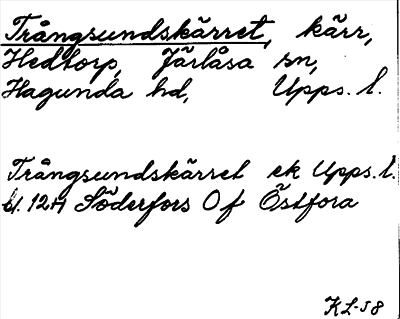 Trångsundskärret, kärr,
Hedtorp, Järlåsa sn,
Hagunda hd, Upps. l.
Trångsundskärret ek Upps. l.
bl. 12H Söderfors 0 f Östfora
KL-58